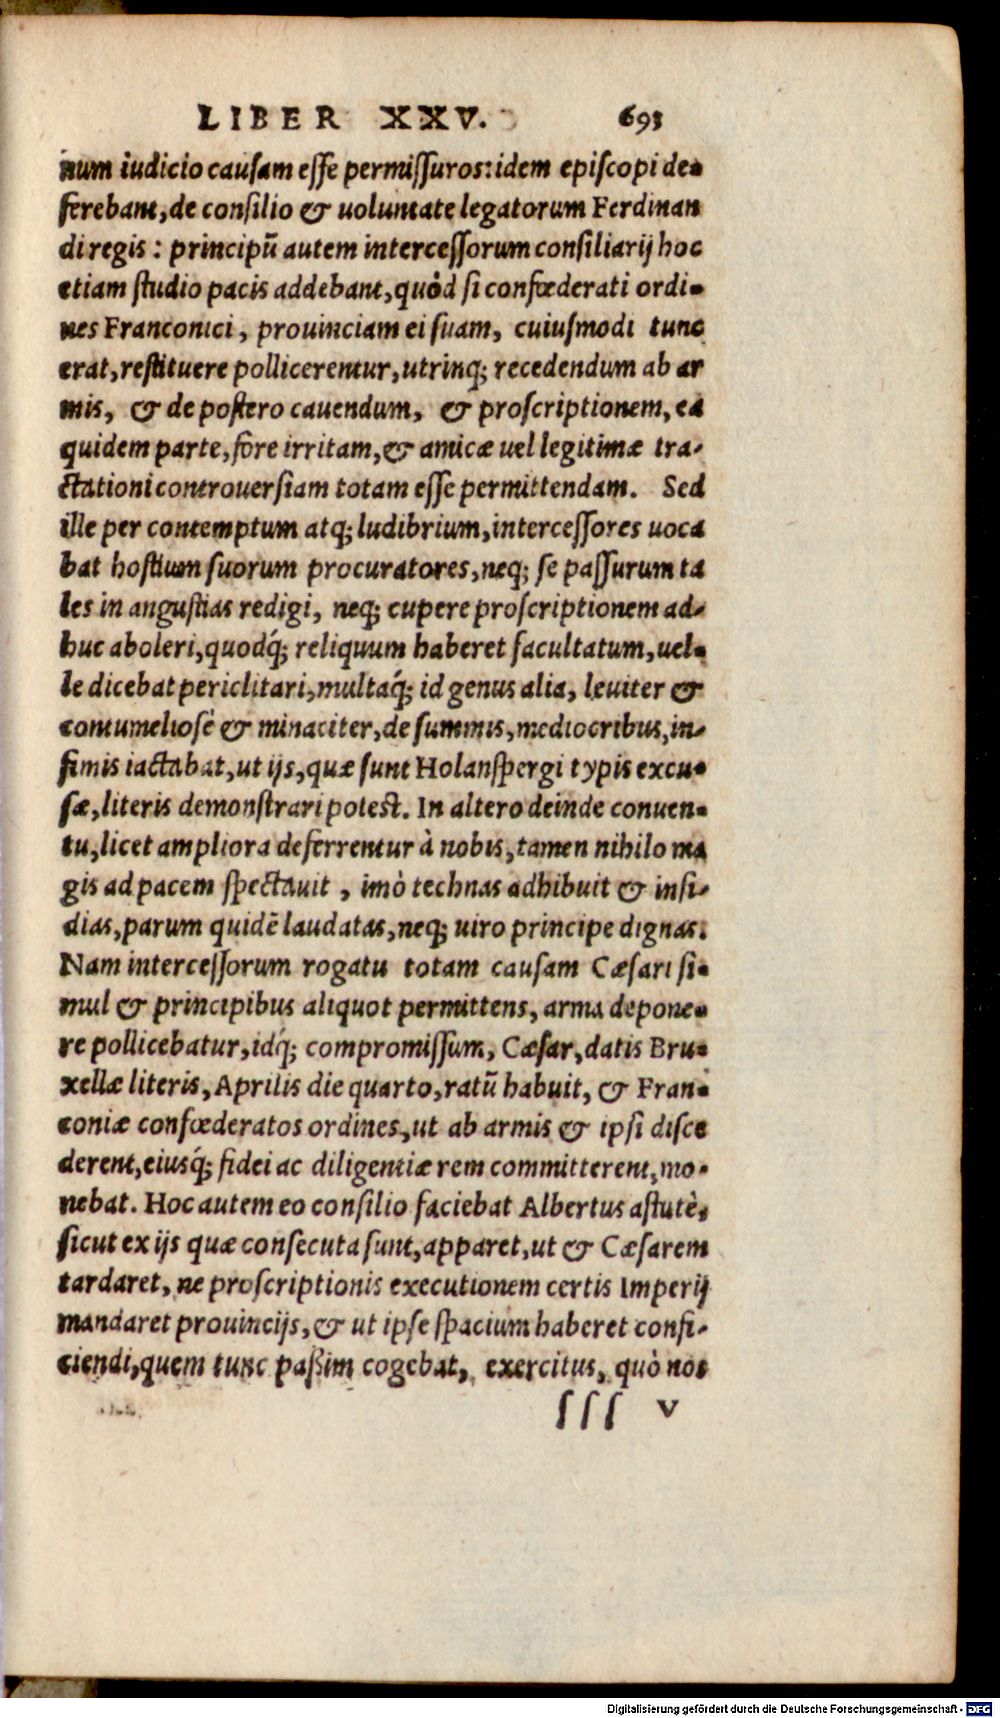 LIBER XXV. 693
num iudicio causam esse permissuros: idem episcopi de-
ferebant, de consilio & uoluntate legatorum Ferdinan
di regis: principũ autem intercessorum consiliarij hoc
etiam studio pacis addebant, quòd si confœderati ordi-
nes Franconici, prouinciam ei suam, cuiusmodi tunc
erat, restituere pollicerentur, utrinq; recedendum ab ar
mis, & de postero cauendum, & proscriptionem, ea
quidem parte, fore irritam, & amicæ uel legitimæ tra-
ctationi controuersiam totam esse permittendam. Sed
ille per contemptum atq; ludibrium, intercessores uoca
bat hostium suorum procuratores, neq; se passurum ta
les in angustias redigi, neq; cupere proscriptionem ad-
huc aboleri, quodq́; reliquum haberet facultatum, uel-
le dicebat periclitari, multaq́; id genus alia, leuiter &
contumeliosè & minaciter, de summis, mediocribus, in-
fimis iactabat, ut ijs, quæ sunt Holanspergi typis excu-
sæ, literis demonstrari potest. In altero deinde conuen-
tu, licet ampliora deferrentur à nobis, tamen nihilo ma
gis ad pacem spectauit, imò technas adhibuit & insi-
dias, parum quidẽ laudatas, neq; uiro principe dignas.
Nam intercessorum rogatu totam causam Cæsari si-
mul & principibus aliquot permittens, arma depone-
re pollicebatur, idq́; compromissum, Cæsar, datis Bru-
xellæ literis, Aprilis die quarto, ratũ habuit, & Fran-
coniæ confœderatos ordines, ut ab armis & ipsi disce
derent, eiusq́; fidei ac diligentiæ rem committerent, mo-
nebat. Hoc autem eo consilio faciebat Albertus astutè,
sicut ex ijs quæ consecuta sunt, apparet, ut & Cæsarem
tardaret, ne proscriptionis executionem certis Imperij
mandaret prouincijs, & ut ipse spacium haberet confi-
ciendi, quem tunc paßim cogebat, exercitus, quò nos
sss v
Digitalisierung gefördert durch die Deutsche Forschungsgemeinschaft - DFG